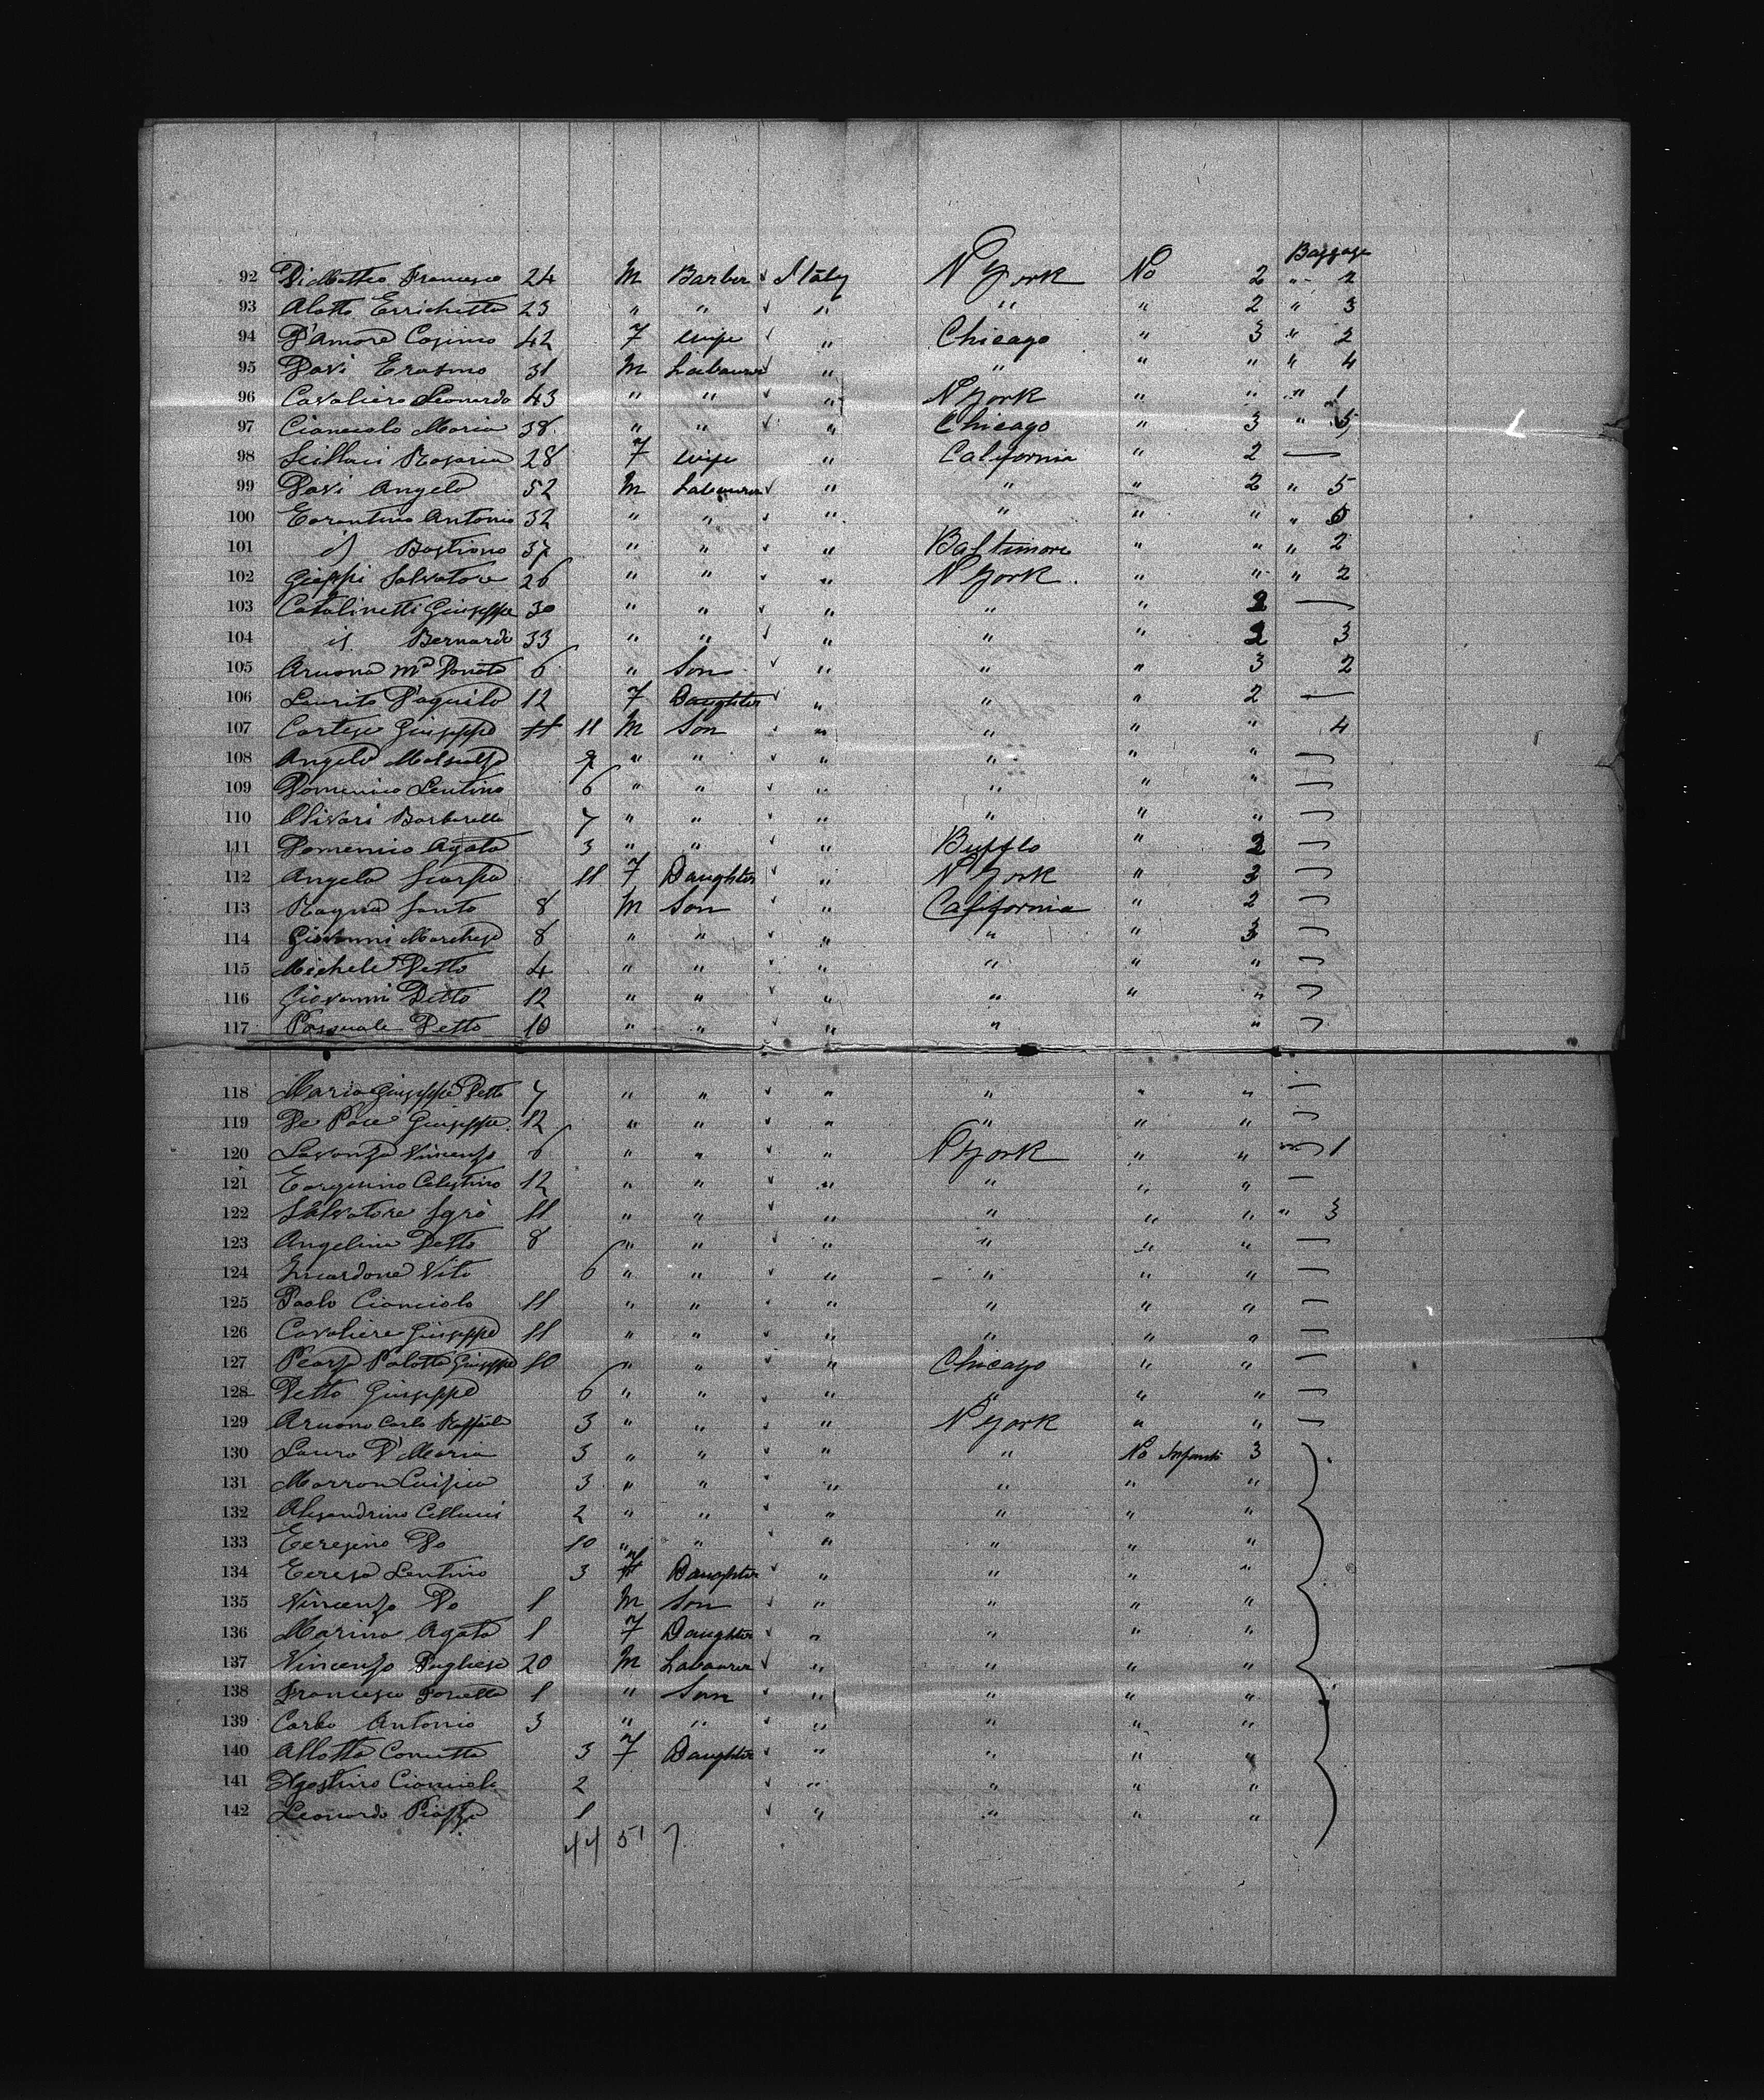 Baggage
92 DiMatteo Francesco 24 M Barber ✓ Italy N York No 2 " 2
93 Alotta Errichetta 23 " " ✓ " " " 2 " 3
94 D'Amore Cosimo 42 F Wife ✓ " Chicago " 3 " 2
95 Davi Erasmo 31 M Labourer ✓ " " " " " 4
96 Cavaliere Leonardo 43 " " ✓ " N York " " " 1
97 Cianciolo Maria 38 " " ✓ " Chicago " 3 " 5
98 Rosaria 28 F Wife " California " 2 —
99 Davi Angelo 52 M Labourer ✓ " " " 2 " 5
100 Tarantino Antonio 32 " " ✓ " " " " "
101 id Bastiano 37 " " ✓ " Baltimore " " " 2
102 Salvatore 26 " " ✓ " N York " " " 2
103 Catalinetti Giuseppe 30 " " ✓ " " " 2 —
104 id Bernardo 33 " " ✓ " " " 2 3
105 Aruona Ma Donato 6 " Son ✓ " " " 3 2
106 Laurito D'aquilo 12 F Daughter ✓ " " " 2 —
107 Cortese Giuseppe 11 M Son ✓ " " " " 4
108 Angelo 9 " " ✓ " " " " —
109 Domenico Lentino 6 " " ✓ " " " " —
110 Olivari Barbarella 7 " " ✓ " " " " —
111 Domenico Agata 3 " " ✓ " Bufflo " 2 —
112 Angela Scarpa 11 F Daughter ✓ " N York " 3 —
113 Ragusa Santo 8 M Son ✓ " California " 2 —
114 Giovanni Marchese 8 " " ✓ " " " 3 —
115 Michele Detto 4 " " ✓ " " " " —
116 Giovanni Detto 12 " " ✓ " " " " —
117 Pasquale Detto 10 " " ✓ " " " —
118 Maria Giuseppe Detto 7 " " ✓ " " " " —
119 De Pace Giuseppe 12 " " ✓ " " " " —
120 Vincenzo 6 " " ✓ " N York " " 1
121 Celestino 12 " " ✓ " " " " —
122 Salvatore Sgrò 11 " " ✓ " " " " " 3
123 Angelina Detto 8 " " ✓ " " " " —
124 Incardona Vito 6 " " ✓ " " " " —
125 Paolo Cianciolo 11 " " ✓ " " " " —
126 Cavaliere Giuseppe 11 " " ✓ " " " " —
127 Giuseppe 10 " " ✓ " Chicago " " —
128 Detto Giuseppe 6 " " ✓ " " " " —
129 Aruona Carlo Raffaele 3 " " ✓ " N York " " —
130 Lauro D'Maria 3 " " ✓ " " No Infants 3
131 Marron 3 " " ✓ " " " "
132 Alesandrino Cellucci 2 " " ✓ " " " "
133 Teresina Do 10 " " ✓ " " " "
134 Teresa Lentino 3 F Daughter ✓ " " " "
135 Vincenzo Do 1 M Son ✓ " " " "
136 Marino Agata 1 F Daughter ✓ " " " "
137 Vincenzo Pugliese 20 M Labourer ✓ " " " "
138 Francesco 1 " Son ✓ " " " "
139 Carbo Antonio 3 " " ✓ " " " "
140 Allotta Concetta 3 F Daughter ✓ " " " "
141 Agostino Cianciolo 2 ✓ " " " "
142 Leonardo Piazza 1 ✓ " " " "
44 51 7